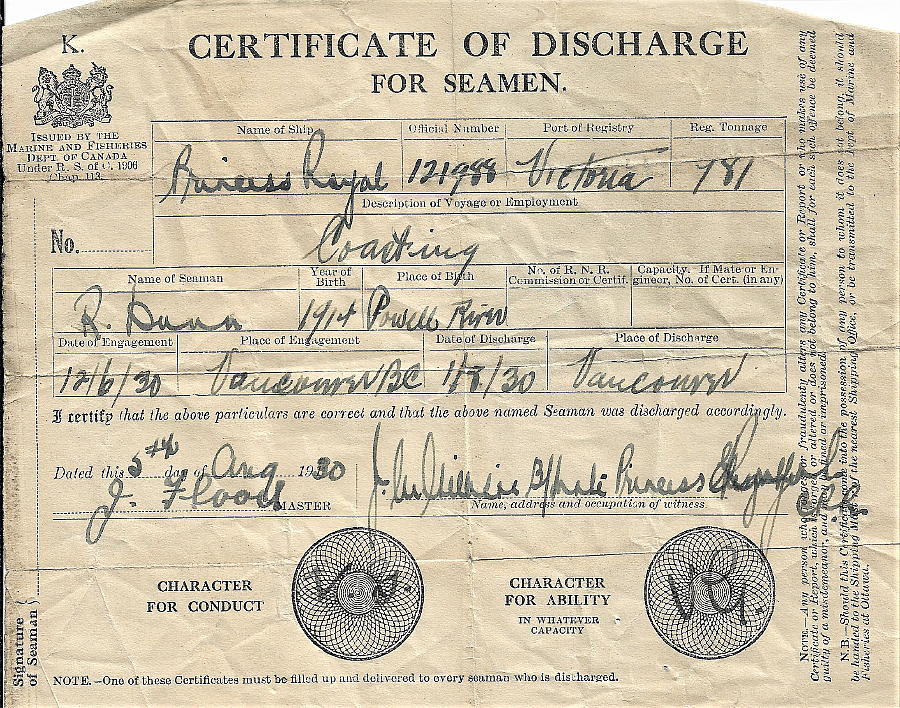 K.
CERTIFICATE OF DISCHARGE
FOR SEAMEN.
ISSUED BY THE
MARINE AND FISHERIES
DEPT. OF CANADA
Under R. S. of C. 1906
Chap. 113.
Name of Ship Official Number Port of Registry Reg. Tonnage
Princess Royal 121988 Victoria 781
Description of Voyage or Employment
No.
Coasting
Name of Seaman Year of Birth Place of Birth No. of R. N. R. Commission or Certif. Capacity. If Mate or Engineer, No. of Cert. (in any)
R. Dunn 1914 Powell River
Date of Engagement Place of Engagement Date of Discharge Place of Discharge
12/6/30 Vancouver BC 1/8/30 Vancouver
I certify that the above particulars are correct and that the above named Seaman was discharged accordingly.
Dated this 5th day of Aug 1930
J. Flood MASTER
Princess
Name, address and occupation of witness
CHARACTER
FOR CONDUCT
V.G.
CHARACTER
FOR ABILITY
IN WHATEVER
CAPACITY
V.G.
Signature
of Seaman
NOTE.—One of these Certificates must be filled up and delivered to every seaman who is discharged.
NOTE.—Any person who forges or fraudulently alters any Certificate or Report or who makes use of any
Certificate or Report, which is forged or altered or does not belong to him, shall for each such offence be deemed
guilty of a misdemeanor, and may be fined or imprisoned.
N.B.—Should this Certificate come into the possession of any person to whom it does not belong, it should
be handed to the Shipping Master of the nearest Shipping Office, or be transmitted to the Dept of Marine and
Fisheries at Ottawa.